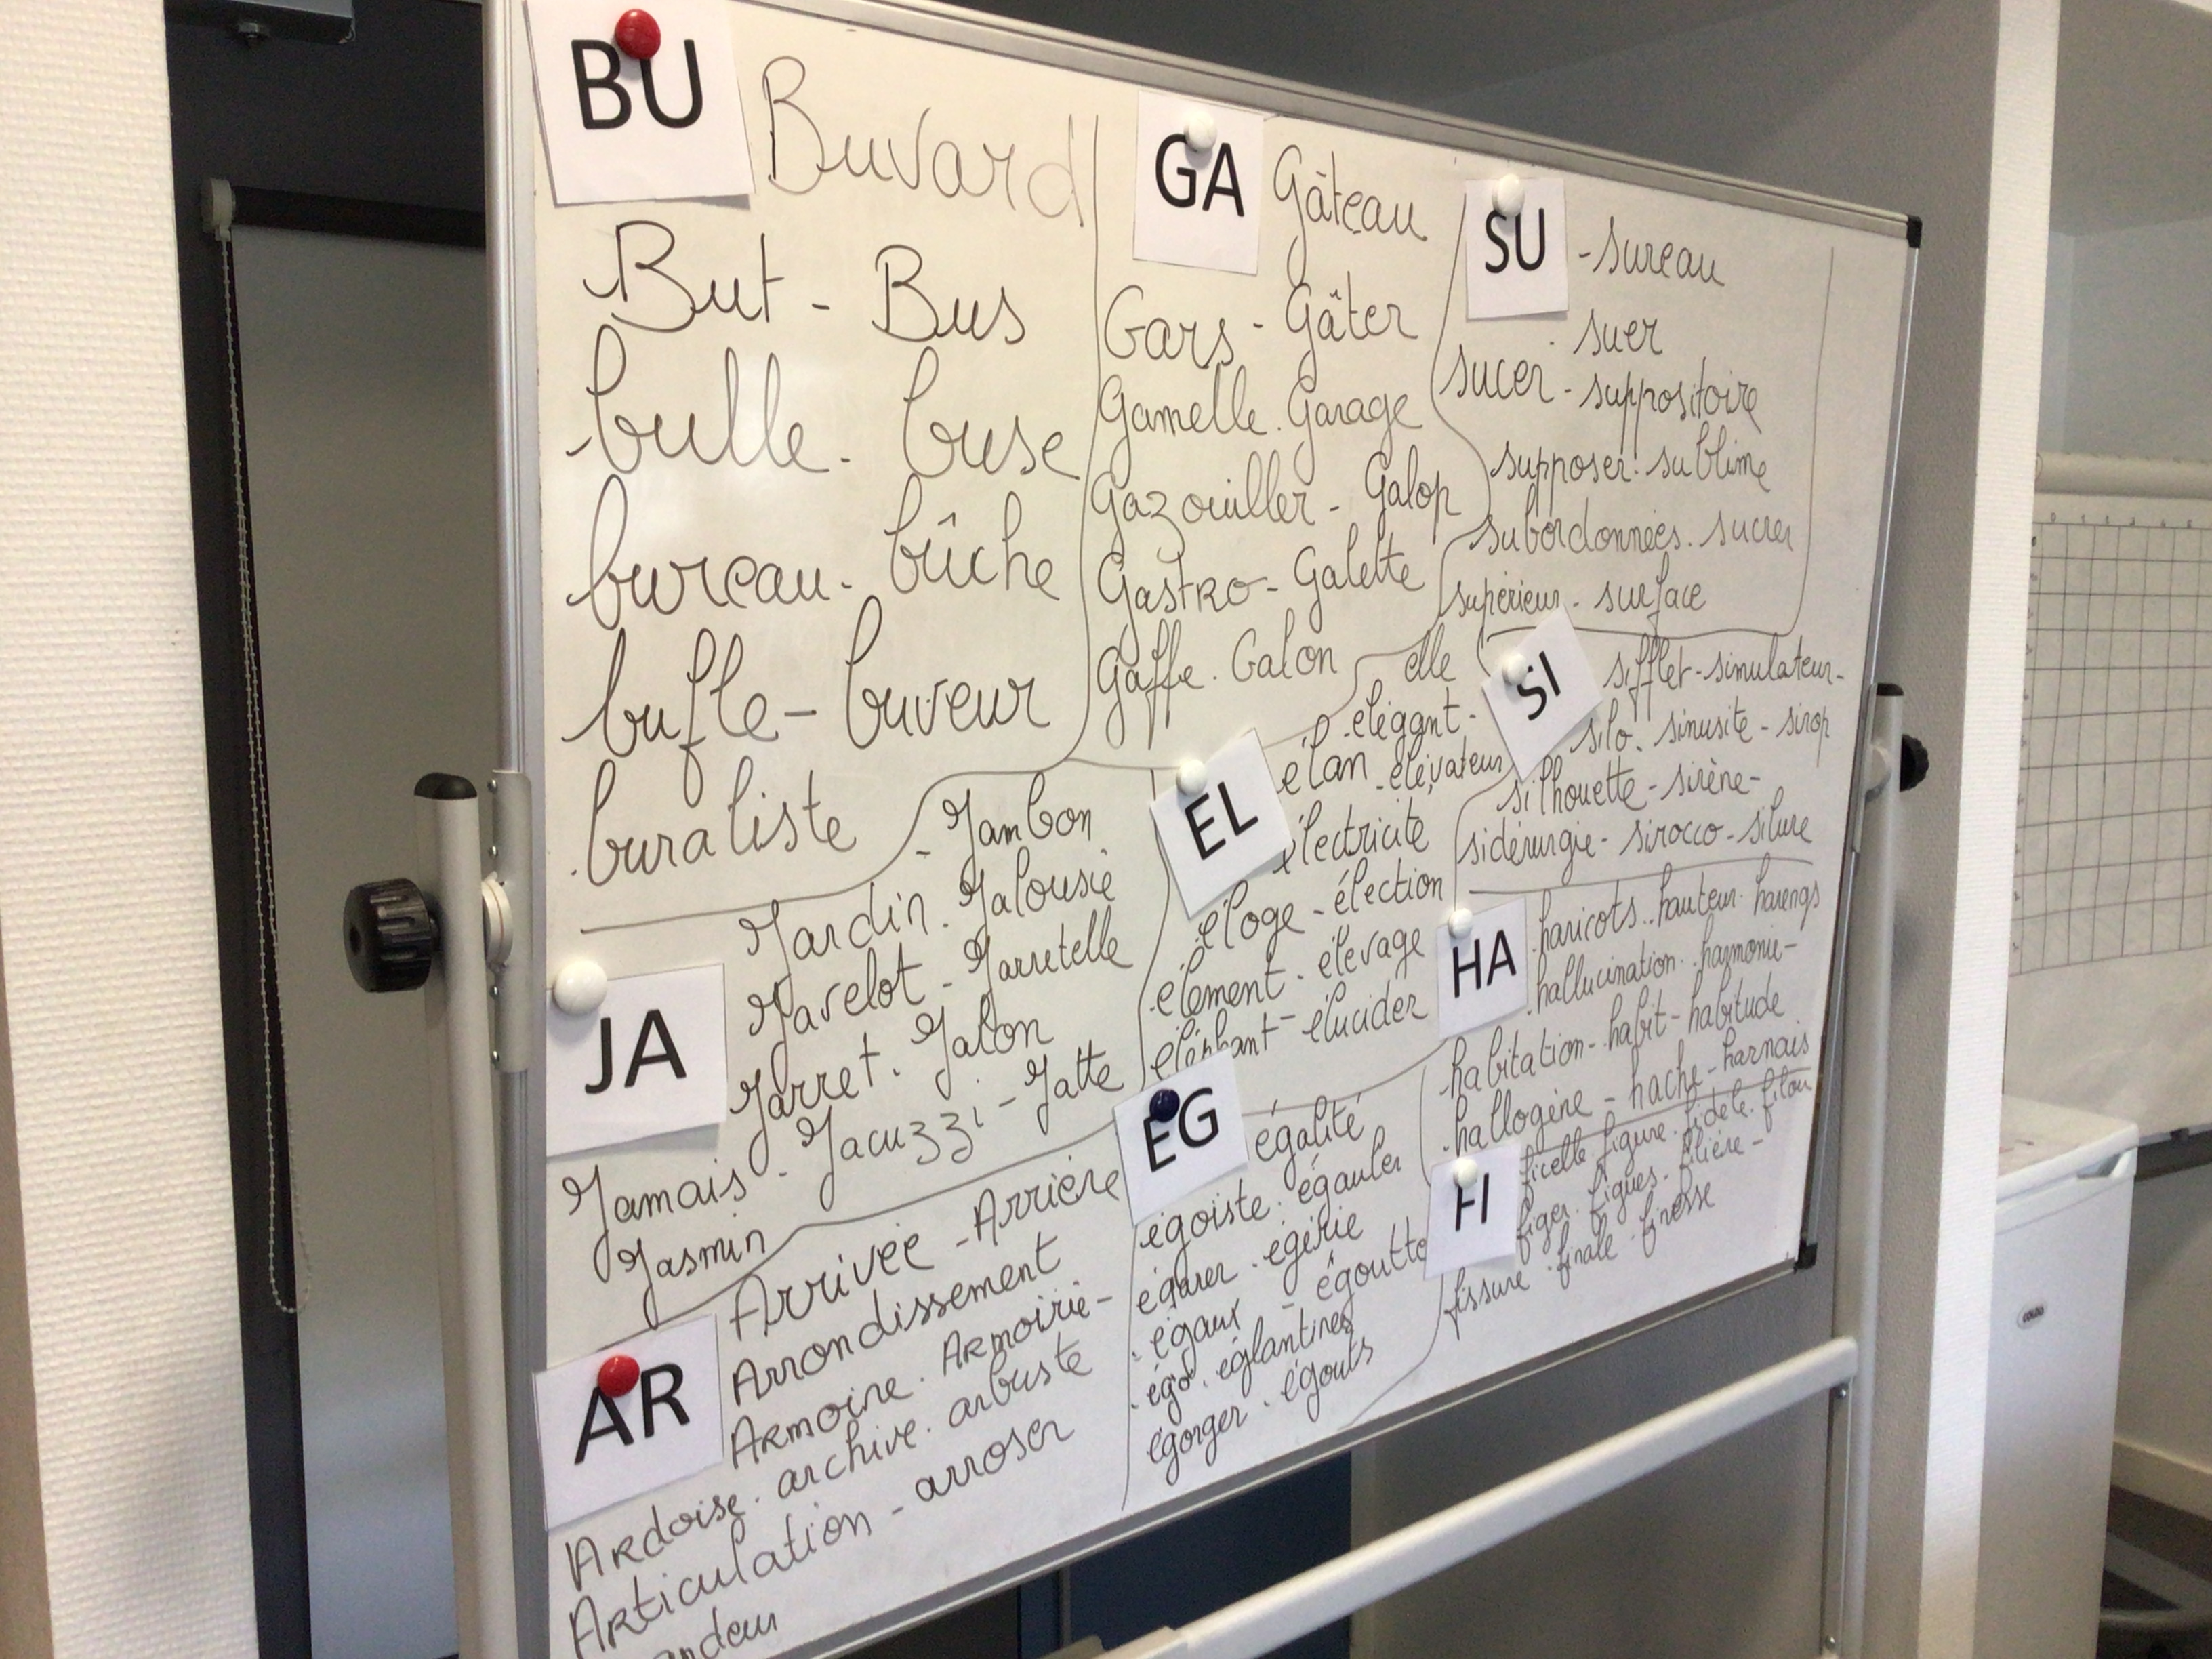 BU
Buvard
But - Bus
bulle - buse
bureau - bûche
bufle - buveur
buraliste
GA
Gâteau
Gars - Gâter
Gamelle. Garage
Gazouiller - Galop
Gastro - Galette
Gaffe. Galon
SU
- sureau
suer
sucer - suppositoire
supposer. sublime
subordonnées. sucrer
supérieur - surface
SI
sifflet - simulateur -
silo. sinusite - sirop
silhouette - sirène -
sidérurgie - sirocco - silure
EL
elle
élégant -
élan - élévateur
électricité
éloge - élection
élément - élevage
éléphant - élucider
HA
haricots. hauteur. harengs
hallucination. harmonie -
habitation - habit - habitude
hallogène - hache - harnais
JA
- Jambon
Jardin. Jalousie
Javelot - Jarretelle
Jarret. Jalon
Jamais - Jacuzzi - Jatte
Jasmin
EG
égalité
égoiste. égauler
égarer. égérie
égaux - égoutte
égo. églantines
égorger. égouts
FI
ficelle. figure. fidele. filou
figer. figues. filière -
fissure. finale. finesse
AR
Arrivée - Arrière
Arrondissement
Armoire. Armoirie -
Ardoise. archive. arbuste
Articulation - arroser